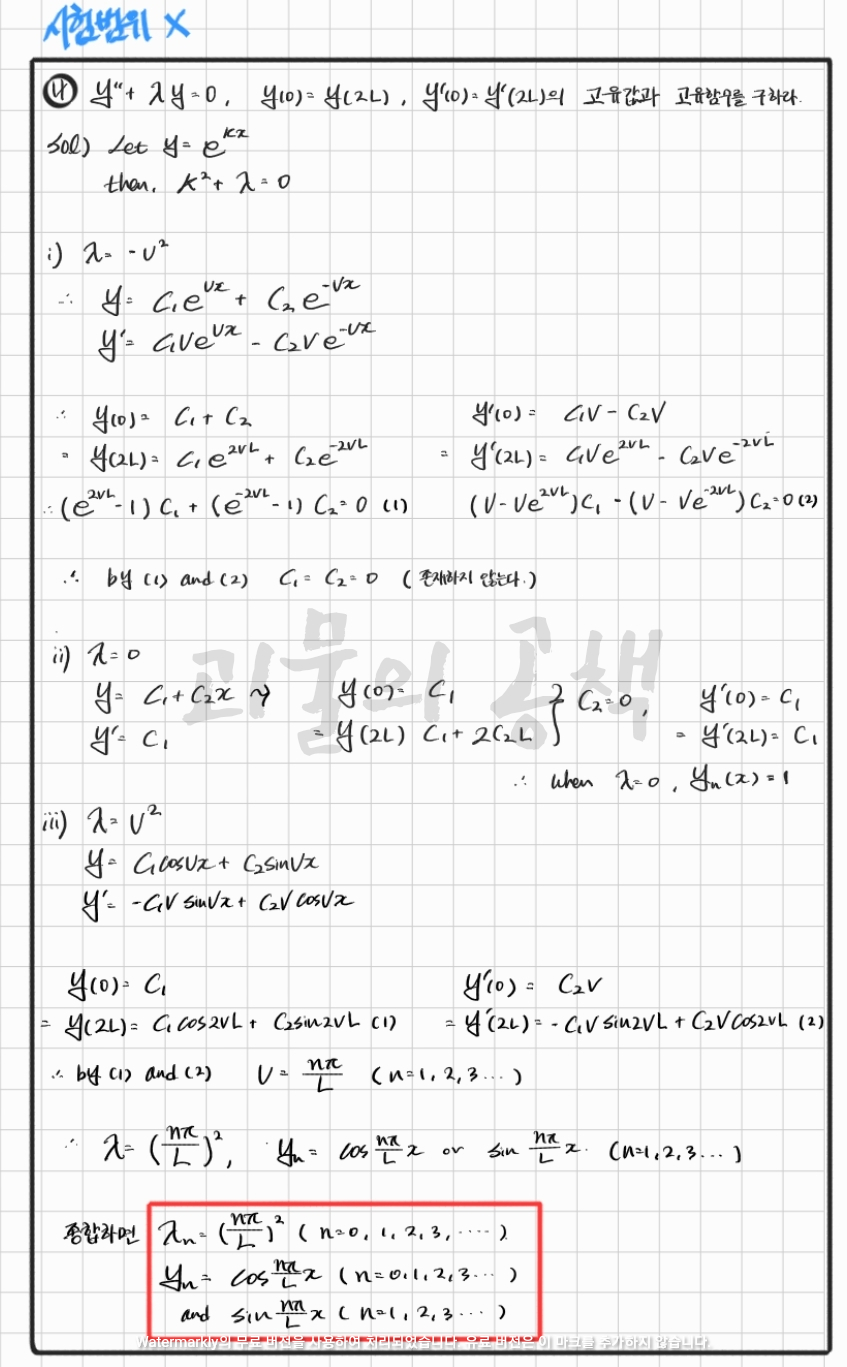 시험범위 X
(나) y" + λy = 0, y(0) = y(2L), y'(0) = y'(2L)의 고유값과 고유함수를 구하라.
sol) Let y = e^{kx}
then, k² + λ = 0
i) λ = -ν²
∴ y = C₁e^{νx} + C₂e^{-νx}
y' = C₁νe^{νx} - C₂νe^{-νx}
∴ y(0) = C₁ + C₂ y'(0) = C₁ν - C₂ν
= y(2L) = C₁e^{2νL} + C₂e^{-2νL} = y'(2L) = C₁νe^{2νL} - C₂νe^{-2νL}
∴ (e^{2νL} - 1) C₁ + (e^{-2νL} - 1) C₂ = 0 (1) (ν - νe^{2νL})C₁ - (ν - νe^{-2νL})C₂ = 0 (2)
∴ by (1) and (2) C₁ = C₂ = 0 (존재하지 않는다.)
괴물의 공책
ii) λ = 0
y = C₁ + C₂x ~> y(0) = C₁ } C₂ = 0, y'(0) = C₁
y' = C₁ = y(2L) C₁ + 2C₂L = y'(2L) = C₁
∴ when λ = 0, yₙ(x) = 1
iii) λ = ν²
y = C₁cosνx + C₂sinνx
y' = -C₁ν sinνx + C₂ν cosνx
y(0) = C₁ y'(0) = C₂ν
= y(2L) = C₁cos2νL + C₂sin2νL (1) = y'(2L) = -C₁ν sin2νL + C₂ν cos2νL (2)
∴ by (1) and (2) ν = nπ/L (n = 1, 2, 3 ...)
∴ λ = (nπ/L)², yₙ = cos nπ/L x or sin nπ/L x. (n = 1, 2, 3 ...)
종합하면 λₙ = (nπ/L)² (n = 0, 1, 2, 3, ....)
yₙ = cos nπ/L x (n = 0, 1, 2, 3 ...)
and sin nπ/L x (n = 1, 2, 3 ...)
Watermarkly의 무료 버전을 사용하여 처리되었습니다. 유료 버전은 이 마크를 추가하지 않습니다.